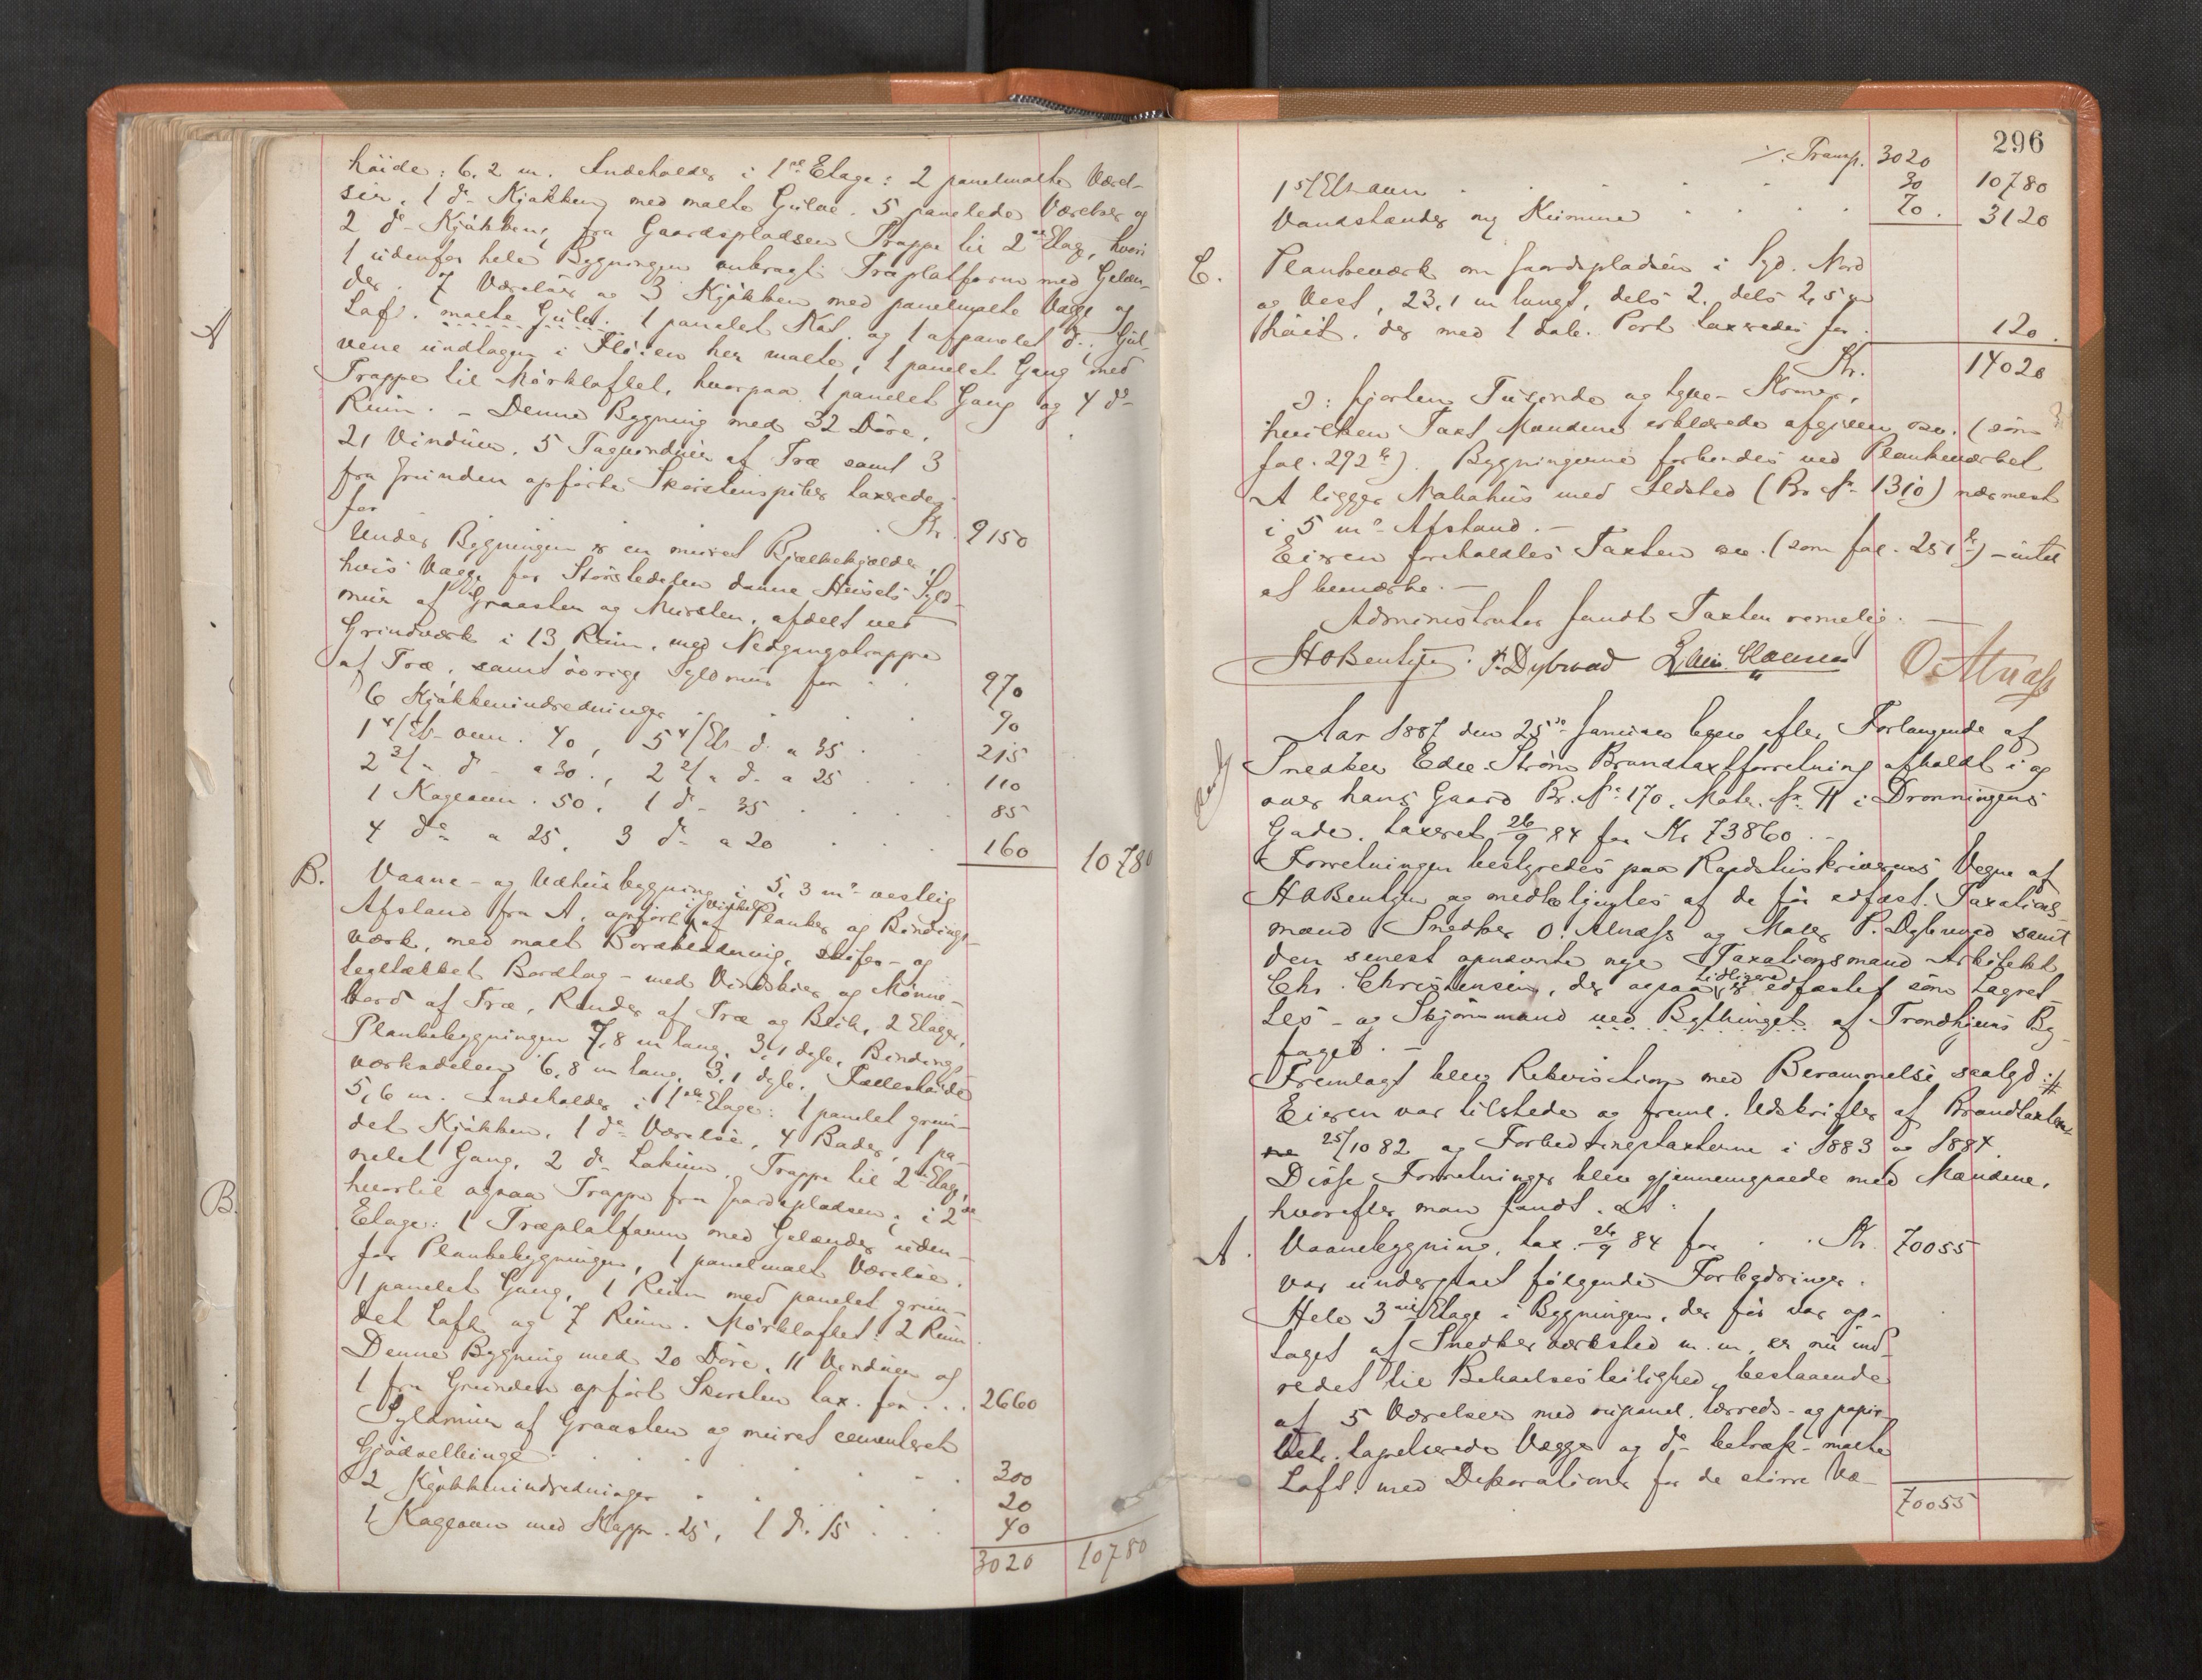 höide: 6,2 m. Indeholder i 1ste Etage: 2 panelmalte Værel-
ser, 1 do Kjøkken med malte Gulve. 5 panelede Værelser og
2 do Kjøkken, fra Gaardspladsen Trappe til 2den Etage, hvori
1 udenfor hele Bygningen anbragt Træplatform med Gelæn-
der. 7 Værelser og 3 Kjøkken med panelmalte Vægge og
Loft. malte Gulve. 1 panelet Kot og 1 afpanelet do. Gul-
vene undtagen i Fløien her malte, 1 panelet Gang med
Trappe til Mørkloftet, hvorpaa 1 panelet Gang og 4 do
Rum. – Denne Bygning med 32 Döre,
21 Vinduer, 5 Tagvinduer af Træ samt 3
fra Grunden opførte Skorstenspiber taxeredes
for . . Kr. 9150
Under Bygningen er en muret Bjælkekjælder,
hvis Vægge for Størstedelen danne Husets Syld-
mur af Graasten og Mursten, afdelt ved
Grindværk i 13 Rum, med Nedgangstrappe
af Træ, samt øvrige Syldmur for . . 970
6 Kjøkkenindredninger . . . 90
1 4/Et. ovn. 40, 5 4/Et. do a 35 . . 215
2 3/" do a 30., 2 2/" do a 25 . . . 110
1 Kageovn . 50, 1 do 35 . . . . 85
4 do a 25, 3 do a 20 . . . 160 10780
B. Vaane- og Udhusbygning i 5,3 m. vestlig
Afstand fra A, opført i Vinkel af Planker og Bindings-
værk, med malt Bordklædning, skifer- og
teglt​ækket Bordtag – med Vindskier og Mønne-
bord af Træ, Render af Træ og Blik, 2 Etager,
Plankebygningen 7,8 m lang, 3,1 dyb, Bindings-
værksdelen 6,8 m lang, 3,1 dyb. Fælleshöide
5,6 m. Indeholder i 1ste Etage: 1 panelet grun-
det Kjøkken, 1 do Værelse, 4 Boder, 1 pa-
nelet Gang, 2 do Lokum, Trappe til 2den Etage,
hvortil ogsaa Trappe fra Gardspladsen; i 2den
Etage: 1 Træplatform med Gelænder uden-
for Plankebygningen, 1 panelmalt Værelse,
1 panelet Gang, 1 Rum med panelet grun-
det Loft og 7 Rum. Mørkloftet: 2 Rum.
Denne Bygning med 20 Döre, 11 Vinduer og
1 fra Grunden opført Skorsten tax. for . . . 2660
Syldmur af Graasten og muret cementeret
Gjødselbinge . . . . . . . 300
2 Kjøkkenindredninger . . . . 20
1 Kageovn med Kappe . 25, 1 do 15 . . . 40
3020 10780
A
B.
296
./. Transp. 3020 10780
1 5/Et. ovn . . . . . 30
Vandstænder og Kumme . . . . 70. 3120
C. Plankeværk om Gaardspladsen i Syd. Nord
og Vest, 23,1 m langt, dels 2, dels 2,5 m
höit, der med 1 dob. Port taxeredes for . 120.
Kr. 14020
ɔ: fjorten Tusinde og tyve Kroner,
hvilken Taxt Mændene erklærede afgiven osv. (som
fol. 292 b). Bygningerne forbindes ved Plankeværket
A ligger Nabohus med Ildsted (Br. No 1310) nærmest
i 5 m. Afstand. –
Eieren foreholdtes Taxten osv. (som fol. 251 b) – intet
at bemærke. –
Administrator fandt Taxten rimelig. –
H O Bentzen. P. Dybwad Chr. Clausen O. Alnæss
Aar 1887 den 25de Januar blev efter Forlangende af
Snedker Edv. Strøm Brandtaxtforretning afholdt i og
over hans Gaard Br. No 170, Matr. No 71 i Dronningens
Gade. taxeret 26/9 84 for Kr 73860. –
Forretningen bestyredes paa Raadstuskriverens Vegne af
H O Bentzen og medbetjentes af de för edfæst. Taxations-
mænd Snedker O. Alnæss og Maler P. Dybwad samt
den senest opnævnte nye Taxationsmand Arkitekt
Chr. Christensen, der ogsaa tidligere er edfæstet som Lagret-
tes- og Skjønsmand ved Bythinget af Trondhjems By
foged. –
Fremlagt blev Rekvisition med Berammelse saalyd: #
Eieren var tilstede og freml. Udskrifter af Brandtaxter-
ne 25/10 82 og Forbedringstaxterne i 1883 og 1884.
Disse Forretninger blev gjennemgaaede med Mændene,
hvorefter man fandt, at:
A. Vaanebygning, tax. 26/9 84 for . . Kr. 70055
var undergaaet følgende Forbedringer.
Hele 3die Etage i Bygningen, der för var op-
taget af Snedkerværksted m. m, er nu ind-
redet til Beboelsesleilighed, bestaaende
af 5 Værelser med rupanel, lærreds- og papir-
betr. tapetserede Vægge og do betræk-malte
Loft. med Dekorationer for de större Væ-
70055